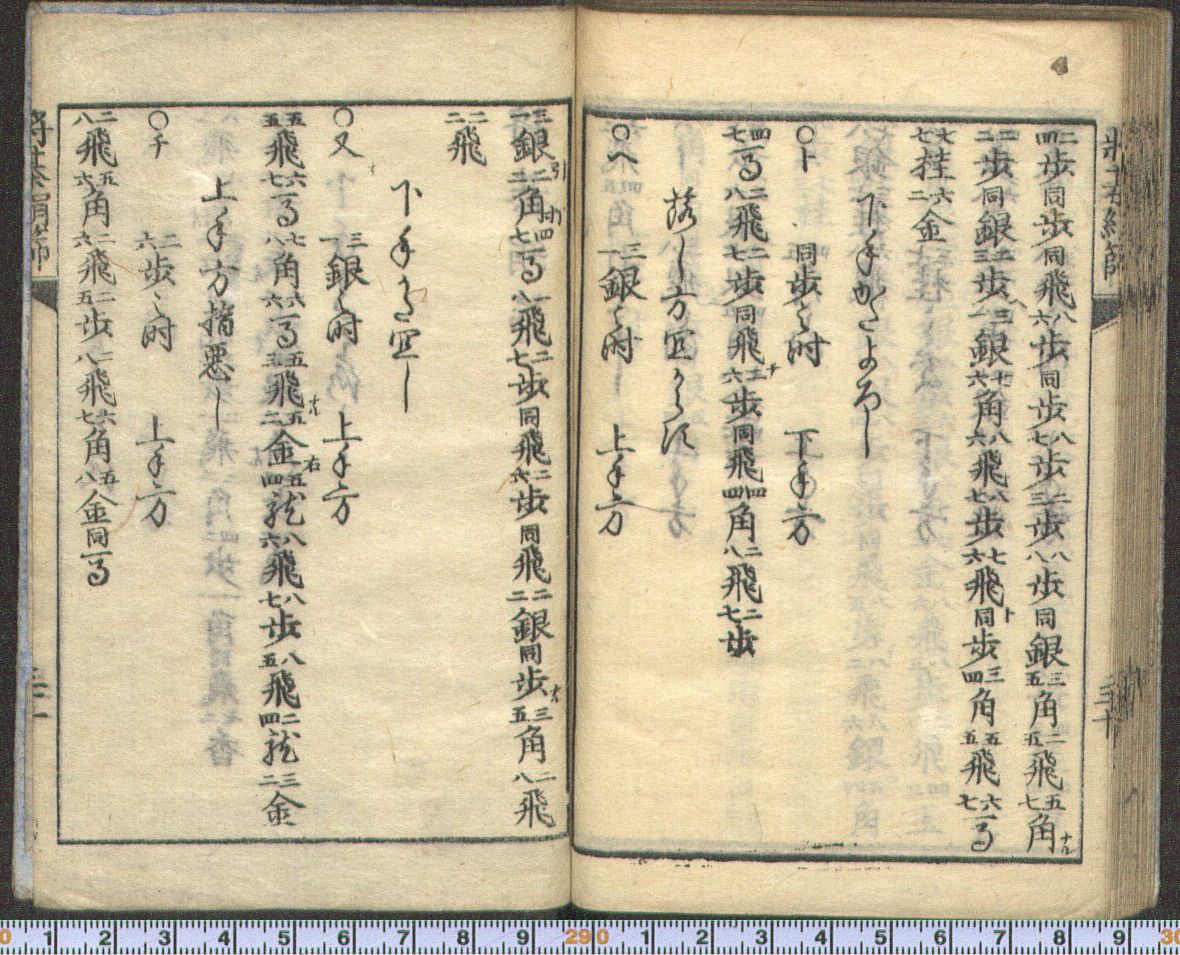 二四歩同歩同飛八六歩同歩八七歩二三歩八八歩同銀三五角二五飛五七角
二二歩同銀二三歩三一銀七六角八六飛八七歩七六飛同歩三四角五五飛六七马
七七桂六二金
下手かたよろし
○ト 同歩之時 下手方
四七马二八飛二七歩同飛二六歩同飛四四角二八飛二七歩
落し方宜からす
○ヘ 三一銀之時 上手方
三一銀二二角四七马一八飛二七歩同飛二六歩同飛二二銀同歩三五角二八飛
二二飛
下手方宜し
○又 三一銀之時 上手方
五五飛六七马七八角六六马五三飛五二金五四龍八六飛八七歩八五飛二四龍三二金
上手方指悪し
○チ 二六歩之時 上手方
二八飛五六角二六飛二五歩二八飛六七角五八金同马
三十
三十一